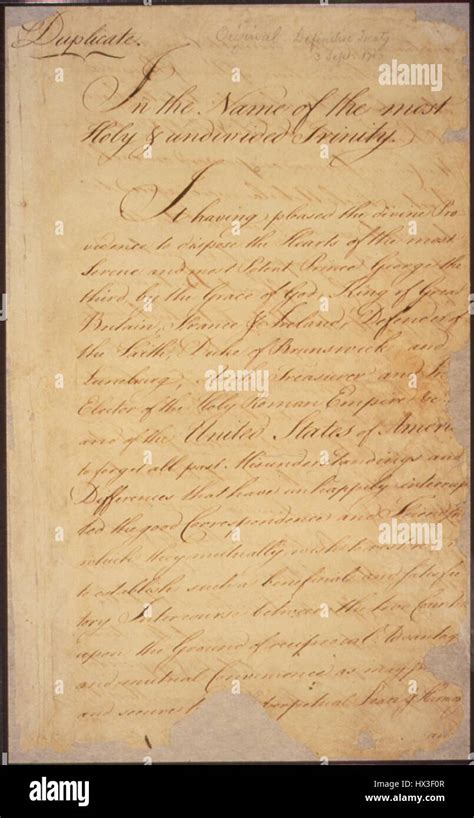 Duplicate.
Original Definitive Treaty
3 Sept. 1783
In the Name of the most
Holy & undivided Trinity.
It having pleased the divine Pro
vidence to dispose the Hearts of the most
Serene and most Potent Prince George the
third, by the Grace of God, King of Great
Britain, France & Ireland, Defender of
the Faith, Duke of Brunswick and
Luneburg, Arch Treasurer and
Elector of the Holy Roman Empire &c.
and of the United States of Ameri
to forget all past Misunderstandings and
Differences that have unhappily interrup
ted the good Correspondence and Friends
which they mutually wish to restore
to establish such a beneficial and satisfac
tory Intercourse between the two Count
upon the Ground of reciprocal Advantag
and mutual Convenience as may p
and secure t perpetual Peace & Harmon
an
alamy
Image ID: HX3F0R
www.alamy.com